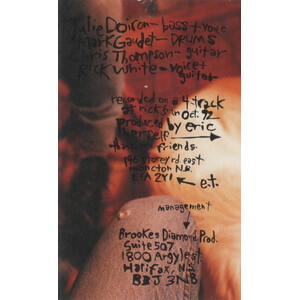 Julie Doiron - bass + voice
Mark Gaudet - DRUMS
Chris Thompson - guitar
Rick White - voice + guitar
recorded on a 4 track
at rick's in oct. 92
produced by eric
herself
thanks friends.
196 storey rd. east
moncton N.B.
E1A 2Y1 ← e.t.
management
Brookes Diamond Prod.
Suite 507
1800 Argyle st.
Halifax, N.S.
B3J 3N8